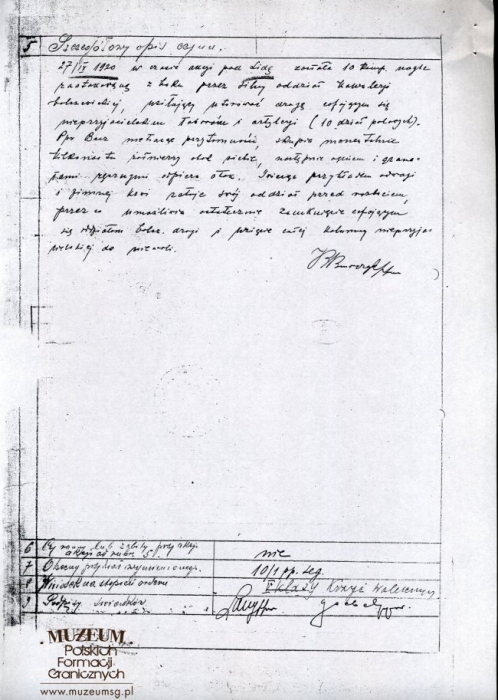 5 Szczegółowy opis czynu.
27/IX 1920 w czasie akcji pod Lidą została 10 komp. nagle
zaatakowaną z boku przez silny oddział kawalerji
bolszewickiej, usiłujący utorować drogę cofającym się
nieprzyjacielskim taborom i artylerji (10 dział polowych).
Ppor. Bacz nie tracąc przytomności, skupia momentalnie
kilkunastu żołnierzy obok siebie, następnie ogniem i grana-
tami ręcznymi odpiera atak. Swoim przykładem odwagi
i zimnej krwi ratuje swój oddział przed rozbiciem,
przez co umożliwia ostateczne zamknięcie cofającym
się oddziałom bolsz. drogi i wzięcie całej kolumny nieprzyja-
cielskiej do niewoli.
6 Czy ranny lub zabity przy akcji
akcji od rubr. 5).
nie
7 Obecny przydział wymienionego.
10/1 pp. Leg.
8 Wniosek na stopień orderu
Klasy Krzyż Walecznych
9 Podpisy świadków
MUZEUM
Polskich
Formacji
Granicznych
www.muzeumsg.pl